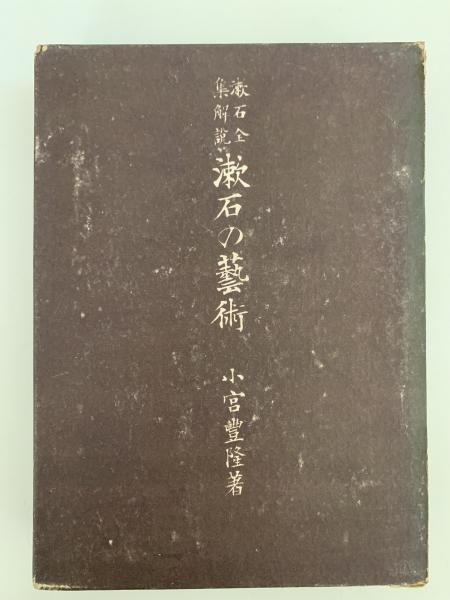 漱石全
集解說
漱石の藝術
小宮豐隆著